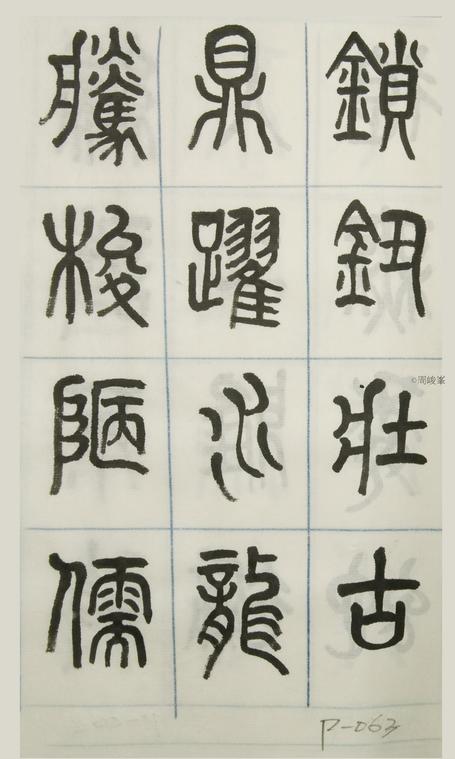 鎖鈕壯古
鼎躍水龍
騰梭陋儒
©周峻峯
P-063